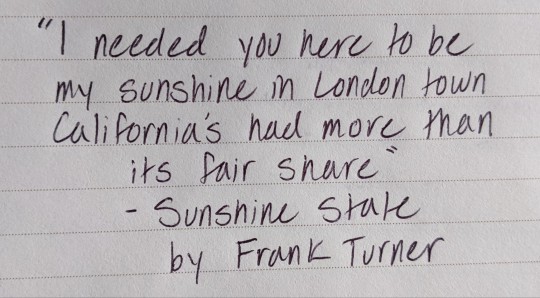 "I needed you here to be
my sunshine in London town
California's had more than
its fair share"
- Sunshine State
by Frank Turner